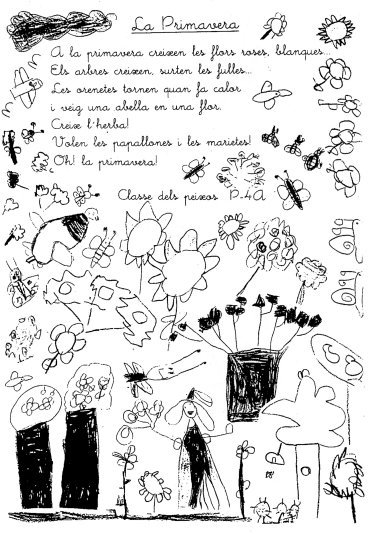 La Primavera
A la primavera creixen les flors roses, blanques...
Els arbres creixen, surten les fulles...
Les orenetes tornen quan fa calor
i veig una abella en una flor.
Creix l'herba!
Volen les papallones i les marietes!
Oh! la primavera!
Classe dels peixos P-4A